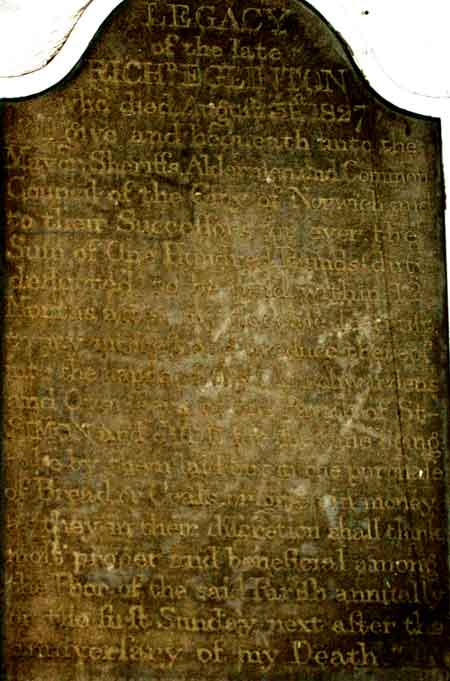 LEGACY
of the late
RICHD. EGLINTON
who died August 31st. 1827
I give and bequeath unto the
Mayor Sheriffs Aldermen and Common
Council of the City of Norwich and
to their Successors for ever the
Sum of One Hundred Pounds duty
deducted to be paid within 12
Months
the produce thereof
into the hands of the Churchwardens
and Overseers of the Parish of St.
SIMON and for the time being
by them laid out in the purchase
of Bread or Coals or given in money
as they in their discretion shall think
most proper and beneficial among
the Poor of the said Parish annually
on the first Sunday next after the
anniversary of my Death."